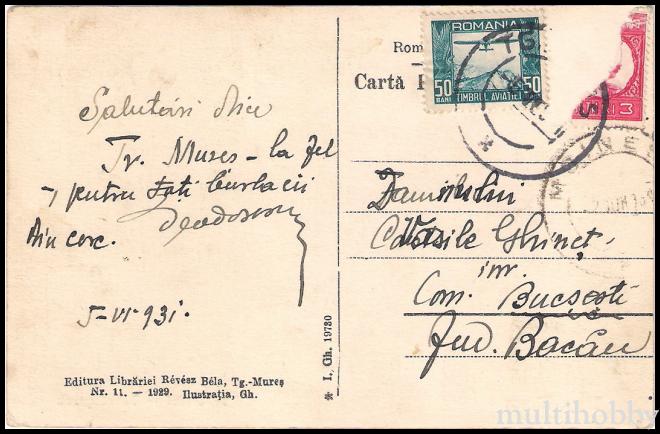 ROMANIA
50 50
BANI TIMBRUL AVIAȚIEI
TG
Rom
Cartă P
Salutări din
Tg. Mureș - la fel
și pentru toți burlacii
din cerc.
5-VI-931.
Editura Librăriei Révész Béla, Tg.-Mureș
Nr. 11. — 1929. Ilustrația, Gh.
* I. Gh. 19730
Domnului
Vasile Ghineț
Com. Bucșești
Jud. Bacău
multihobby